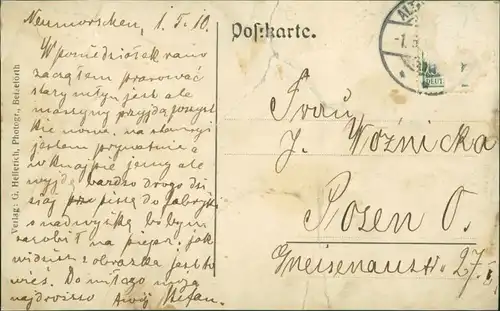 Neumorschen, 1. 5. 10.
W poniedziałek rano
zacząłem pracować
stary młyn jest ale
maszyny przyjdą
nowe. na stancyi
jestem prywatnie a
w knajpie jemy ale
wyjdą bardzo drogo dzi
siaj piszę do fabryki
z nadwyżkę bo bym
zarobił na piepsz. jak
widzisz z obrazka jest to
wieś. Do miłego moja
najdroższo Twój Stefan.
Verlag: G. Hellerich, Photogr., Beiseforth
Postkarte.
Frau
J. Woźnicka
Posen O.
Gneisenaustr. 27.